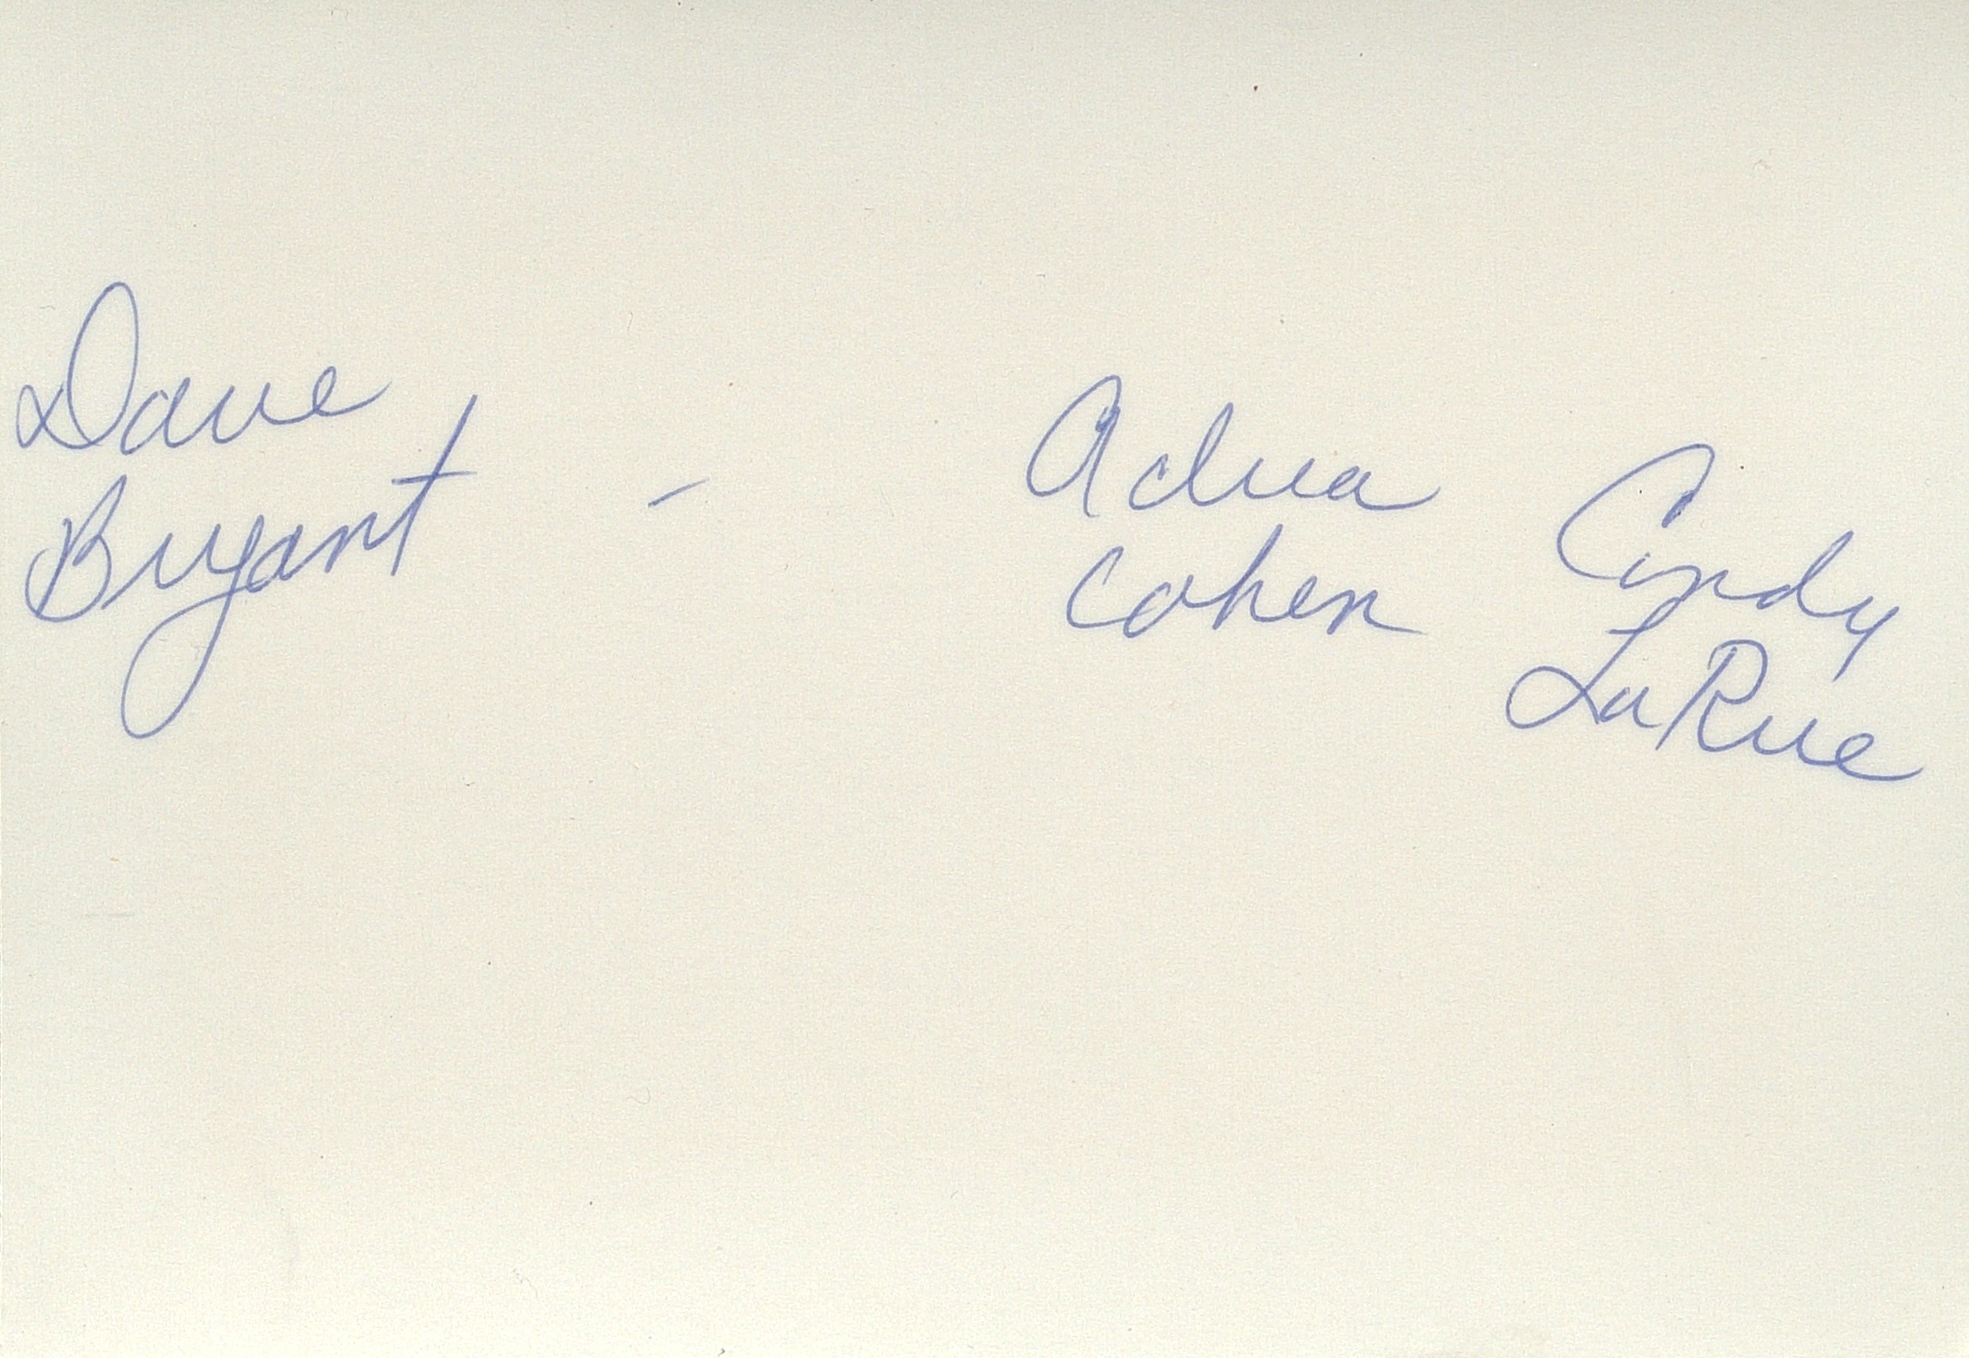 Dave
Bryant
-
Adua
Cohen
Cindy
LaRue